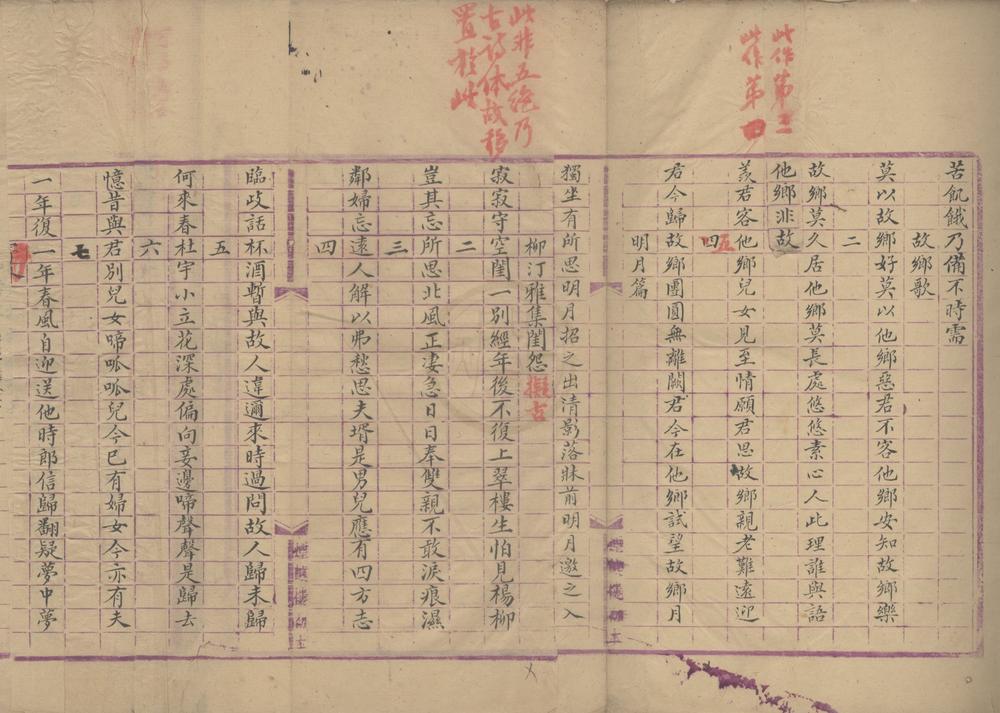 此作第三
此作第四
此非五絶乃
古詩体故移
置於此
苦飢餓乃備不時需
故鄉歌
莫以故鄉好莫以他鄉惡君不客他鄉安知故鄉樂
二
故鄉莫久居他鄉莫長處悠悠素心人此理誰與語
他鄉非故
羨君客他鄉兒女見至情願君思故鄉親老難遠迎
四
五
君今歸故鄉團圓無離闕君今在他鄉試望故鄉月
明月篇
獨坐有所思明月招之出清影落牀前明月邀之入
柳汀雅集閨怨擬古
寂寂守空閨一別經年後不復上翠樓生怕見楊柳
二
豈其忘所思北風正淒急日日奉雙親不敢淚痕濕
三
鄰婦忘遠人解以弟愁思夫壻是男兒應有四方志
四
臨歧話杯酒暫與故人違邇來時過問故人歸未歸
五
何來春杜宇小立花深處偏向妾邊啼聲聲是歸去
六
憶昔與君別兒女啼呱呱兒今已有婦女今亦有夫
七
一年復一年春風自迎送他時郎信歸翻疑夢中夢